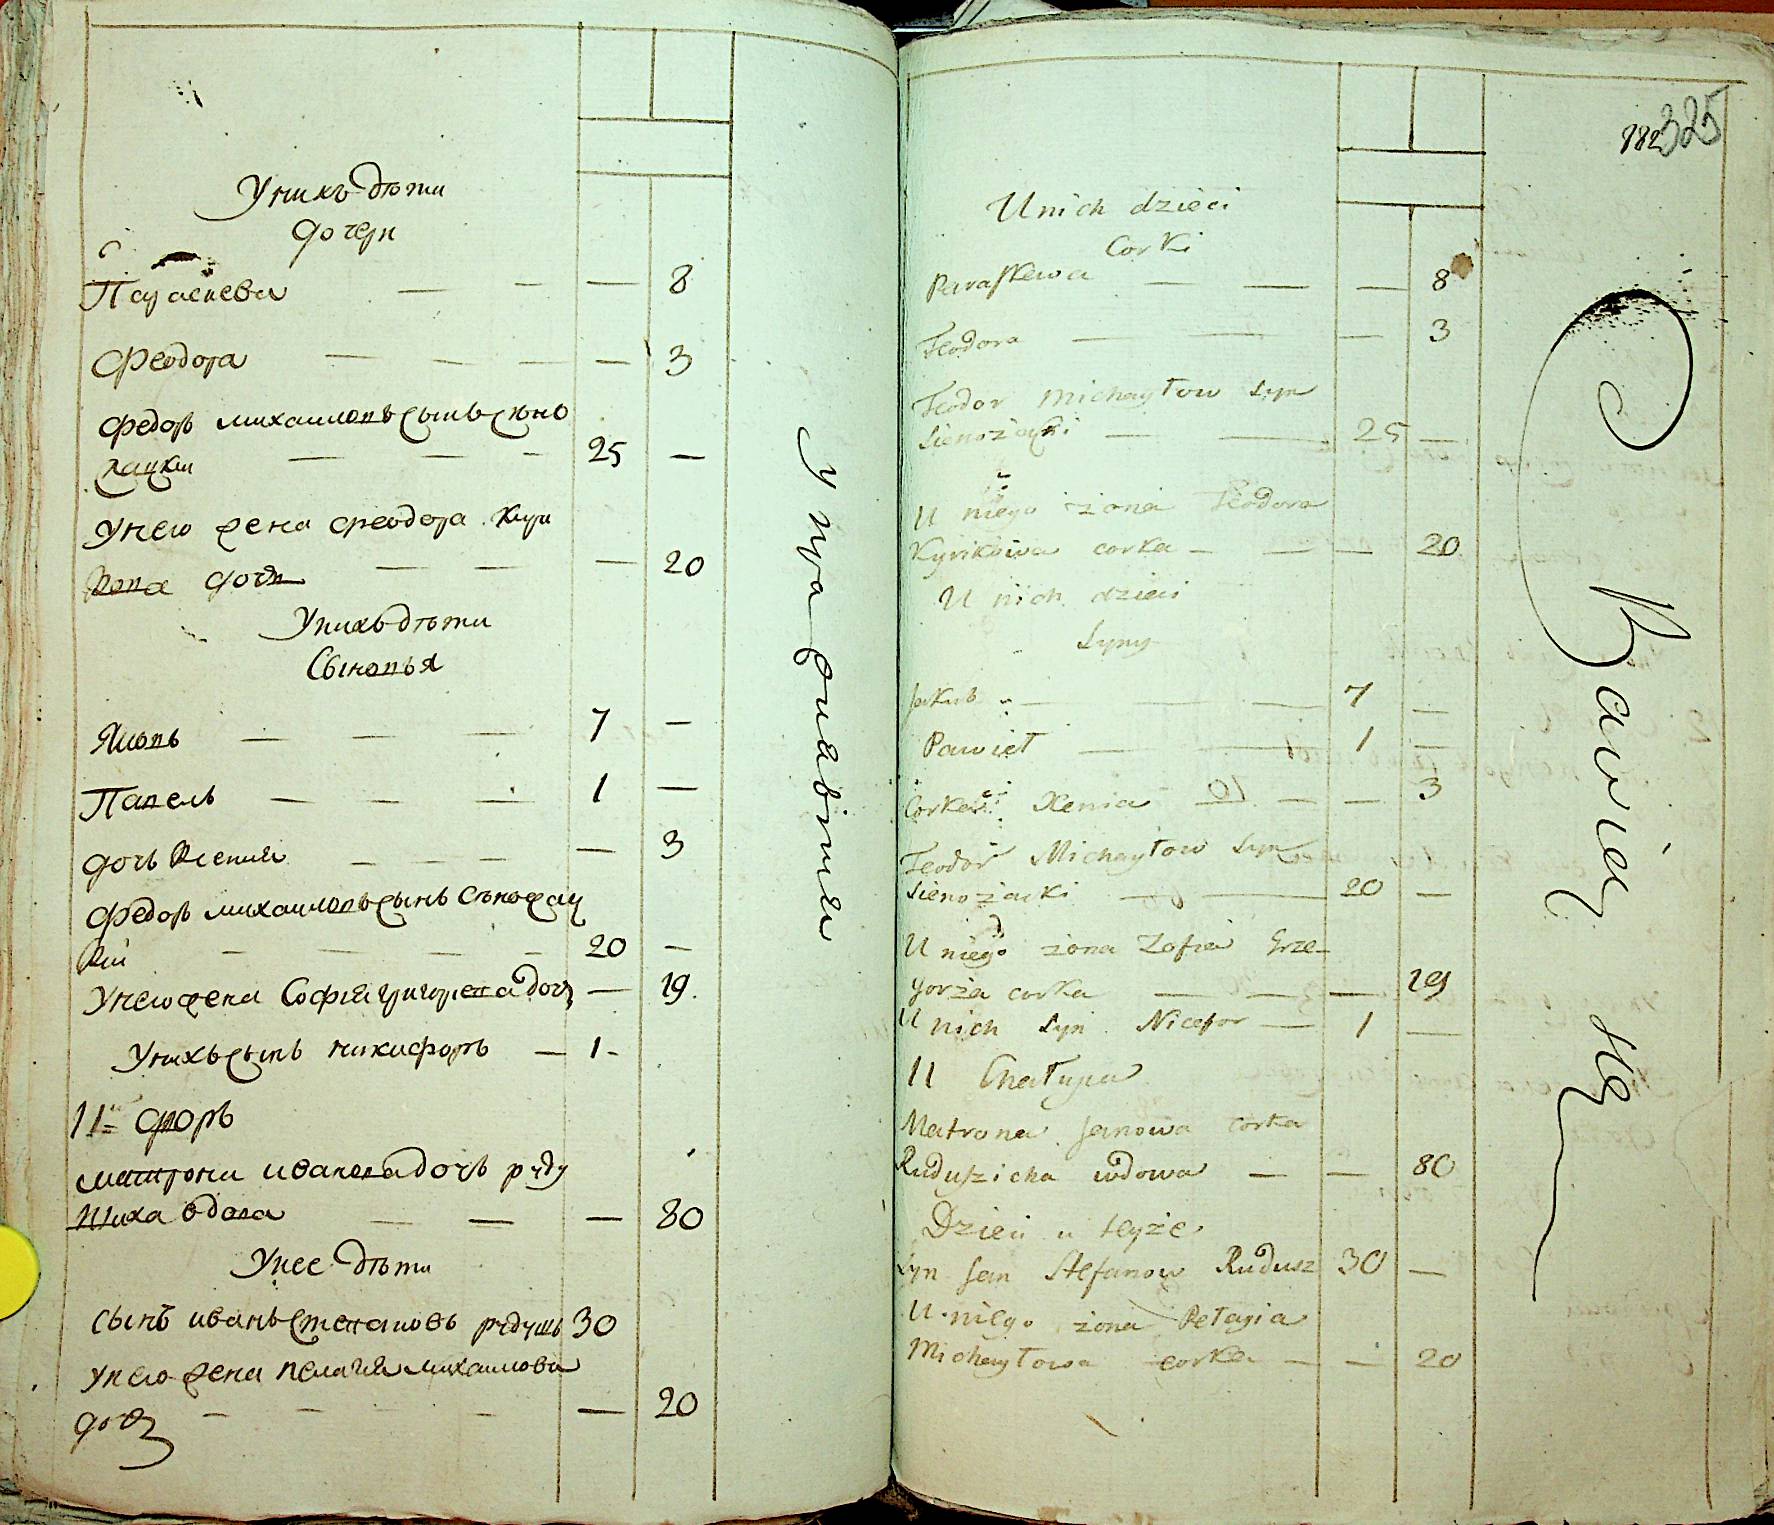 Унихъ дѣти
дочери
Параскева — — — 8
Феодора — — — — 3
Федоръ михаиловъ сынъ сѣно
жацки — — — 25 —
Унего жена феодора Кири
кова дочь — — — 20
Унихъ дѣти
Сыновья
Яковъ — — — 7 —
Павелъ — — — 1 —
дочь Ксения — — — — 3
Федоръ михаиловъ сынъ Сѣножац
кiй — — — — 20 —
Унего жена Софiя григорева дочь — 19.
Унихъ сынъ никифоръ — 1 -
11 = дворъ
матрона иванова дочъ руду
шиха вдова — — — 80
Унее дѣти
сынъ иванъ Степановъ рудушъ 30
унего жена пелагия михаилова
дочь — — — — — 20
182 325
U nich dzieci
Corki
Paraskewa — — — 8
Teodora — — — 3
Teodor Michayłow Syn
Sienożacki — — 25 —
U niego żona Teodora
Kyrikowa corka — — — 20
U nich dzieci
Syny
Jakub — — — 7 —
Pawieł — — 1 —
Corka Xenia — — — 3
Teodor Michayłow Syn
Sienożacki — — 20 —
U niego żona Zofia Grze-
gorza corka — — — 19
U nich Syn Nicefor — 1 —
11 Chałupa
Matrona Janowa corka
Ruduszicha wdowa — — 80
Dzieci u teyże
Syn Jan Stefanow Rudusz 30 —
U niego żona Pełagia
Michayłowa corka — — 20